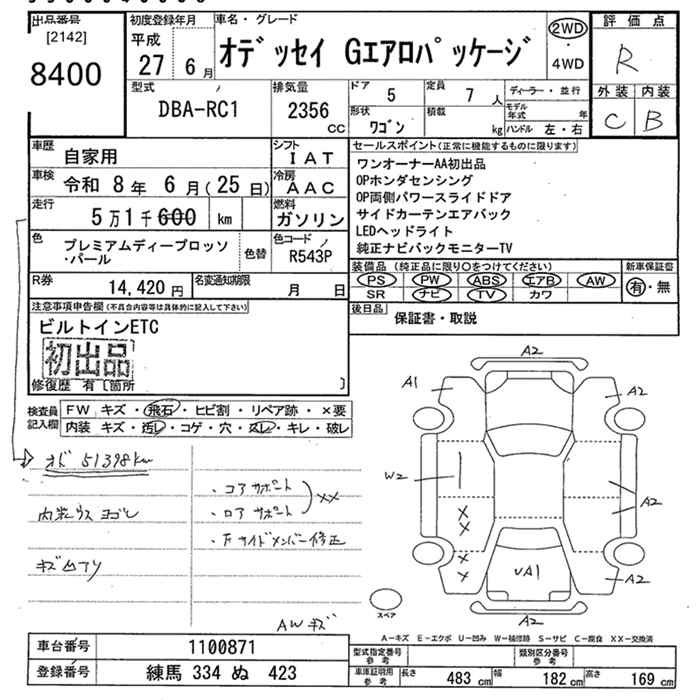 出品番号
[2142]
8400
初度登録年月
平成
27 6月
車名・グレード
オデッセイ Gエアロパッケージ
2WD
・
4WD
評価点
R
外装 内装
C B
型式
DBA-RC1
排気量
2356
cc
ドア
5
定員
7 人
ディーラー・並行
形状
ワゴン
積載
kg
モデル年式 年
ハンドル 左・右
車歴
自家用
シフト
IAT
車検
令和 8年 6月(25日)
冷房
AAC
走行
5万1千600 km
燃料
ガソリン
色
プレミアムディープロッソ
・パール
色替
色コード
R543P
R券
14,420円
名変通知期限
月 日
セールスポイント(正常に機能するものに限ります)
ワンオーナーAA初出品
OPホンダセンシング
OP両側パワースライドドア
サイドカーテンエアバック
LEDヘッドライト
純正ナビバックモニターTV
装備品(純正品に限り○をつけてください)
PS PW ABS エアB AW
SR ナビ TV カワ
新車保証書
有・無
後日品
保証書・取説
注意事項申告欄(不具合内容等は具体的に記入して下さい)
ビルトインETC
初出品
修復歴 有〔箇所 〕
検査員
記入欄
FW キズ・飛石・ヒビ割・リペア跡・×要
内装 キズ・汚レ・コゲ・穴・スレ・キレ・破レ
オド 51398km
内装ウス ヨゴレ
キズ凹アリ
・コアサポート
・ロアサポート
××
・Fサイドメンバー修正
AWキズ
A2
A1
A2
W2
×
×
A2
×
×
UA1
A2
A2
スペア
A－キズ E－エクボ U－凹み W－補修跡 S－サビ C－腐食 XX－交換済
車台番号
1100871
登録番号
練馬 334 ぬ 423
型式指定番号
参考
類別区分番号
参考
車庫証明用
参考
長さ 483 cm 幅 182 cm 高さ 169 cm